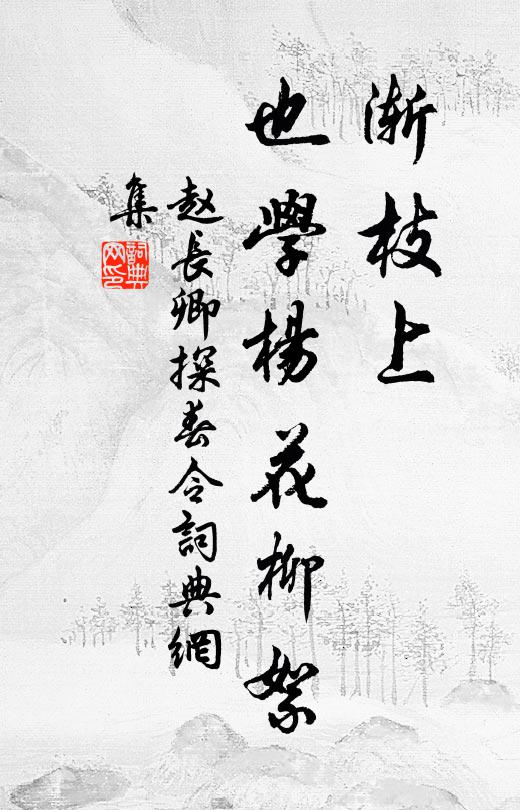 渐枝上
也學楊花柳絮
赵長卿探春令詞典網
集
詞典網印